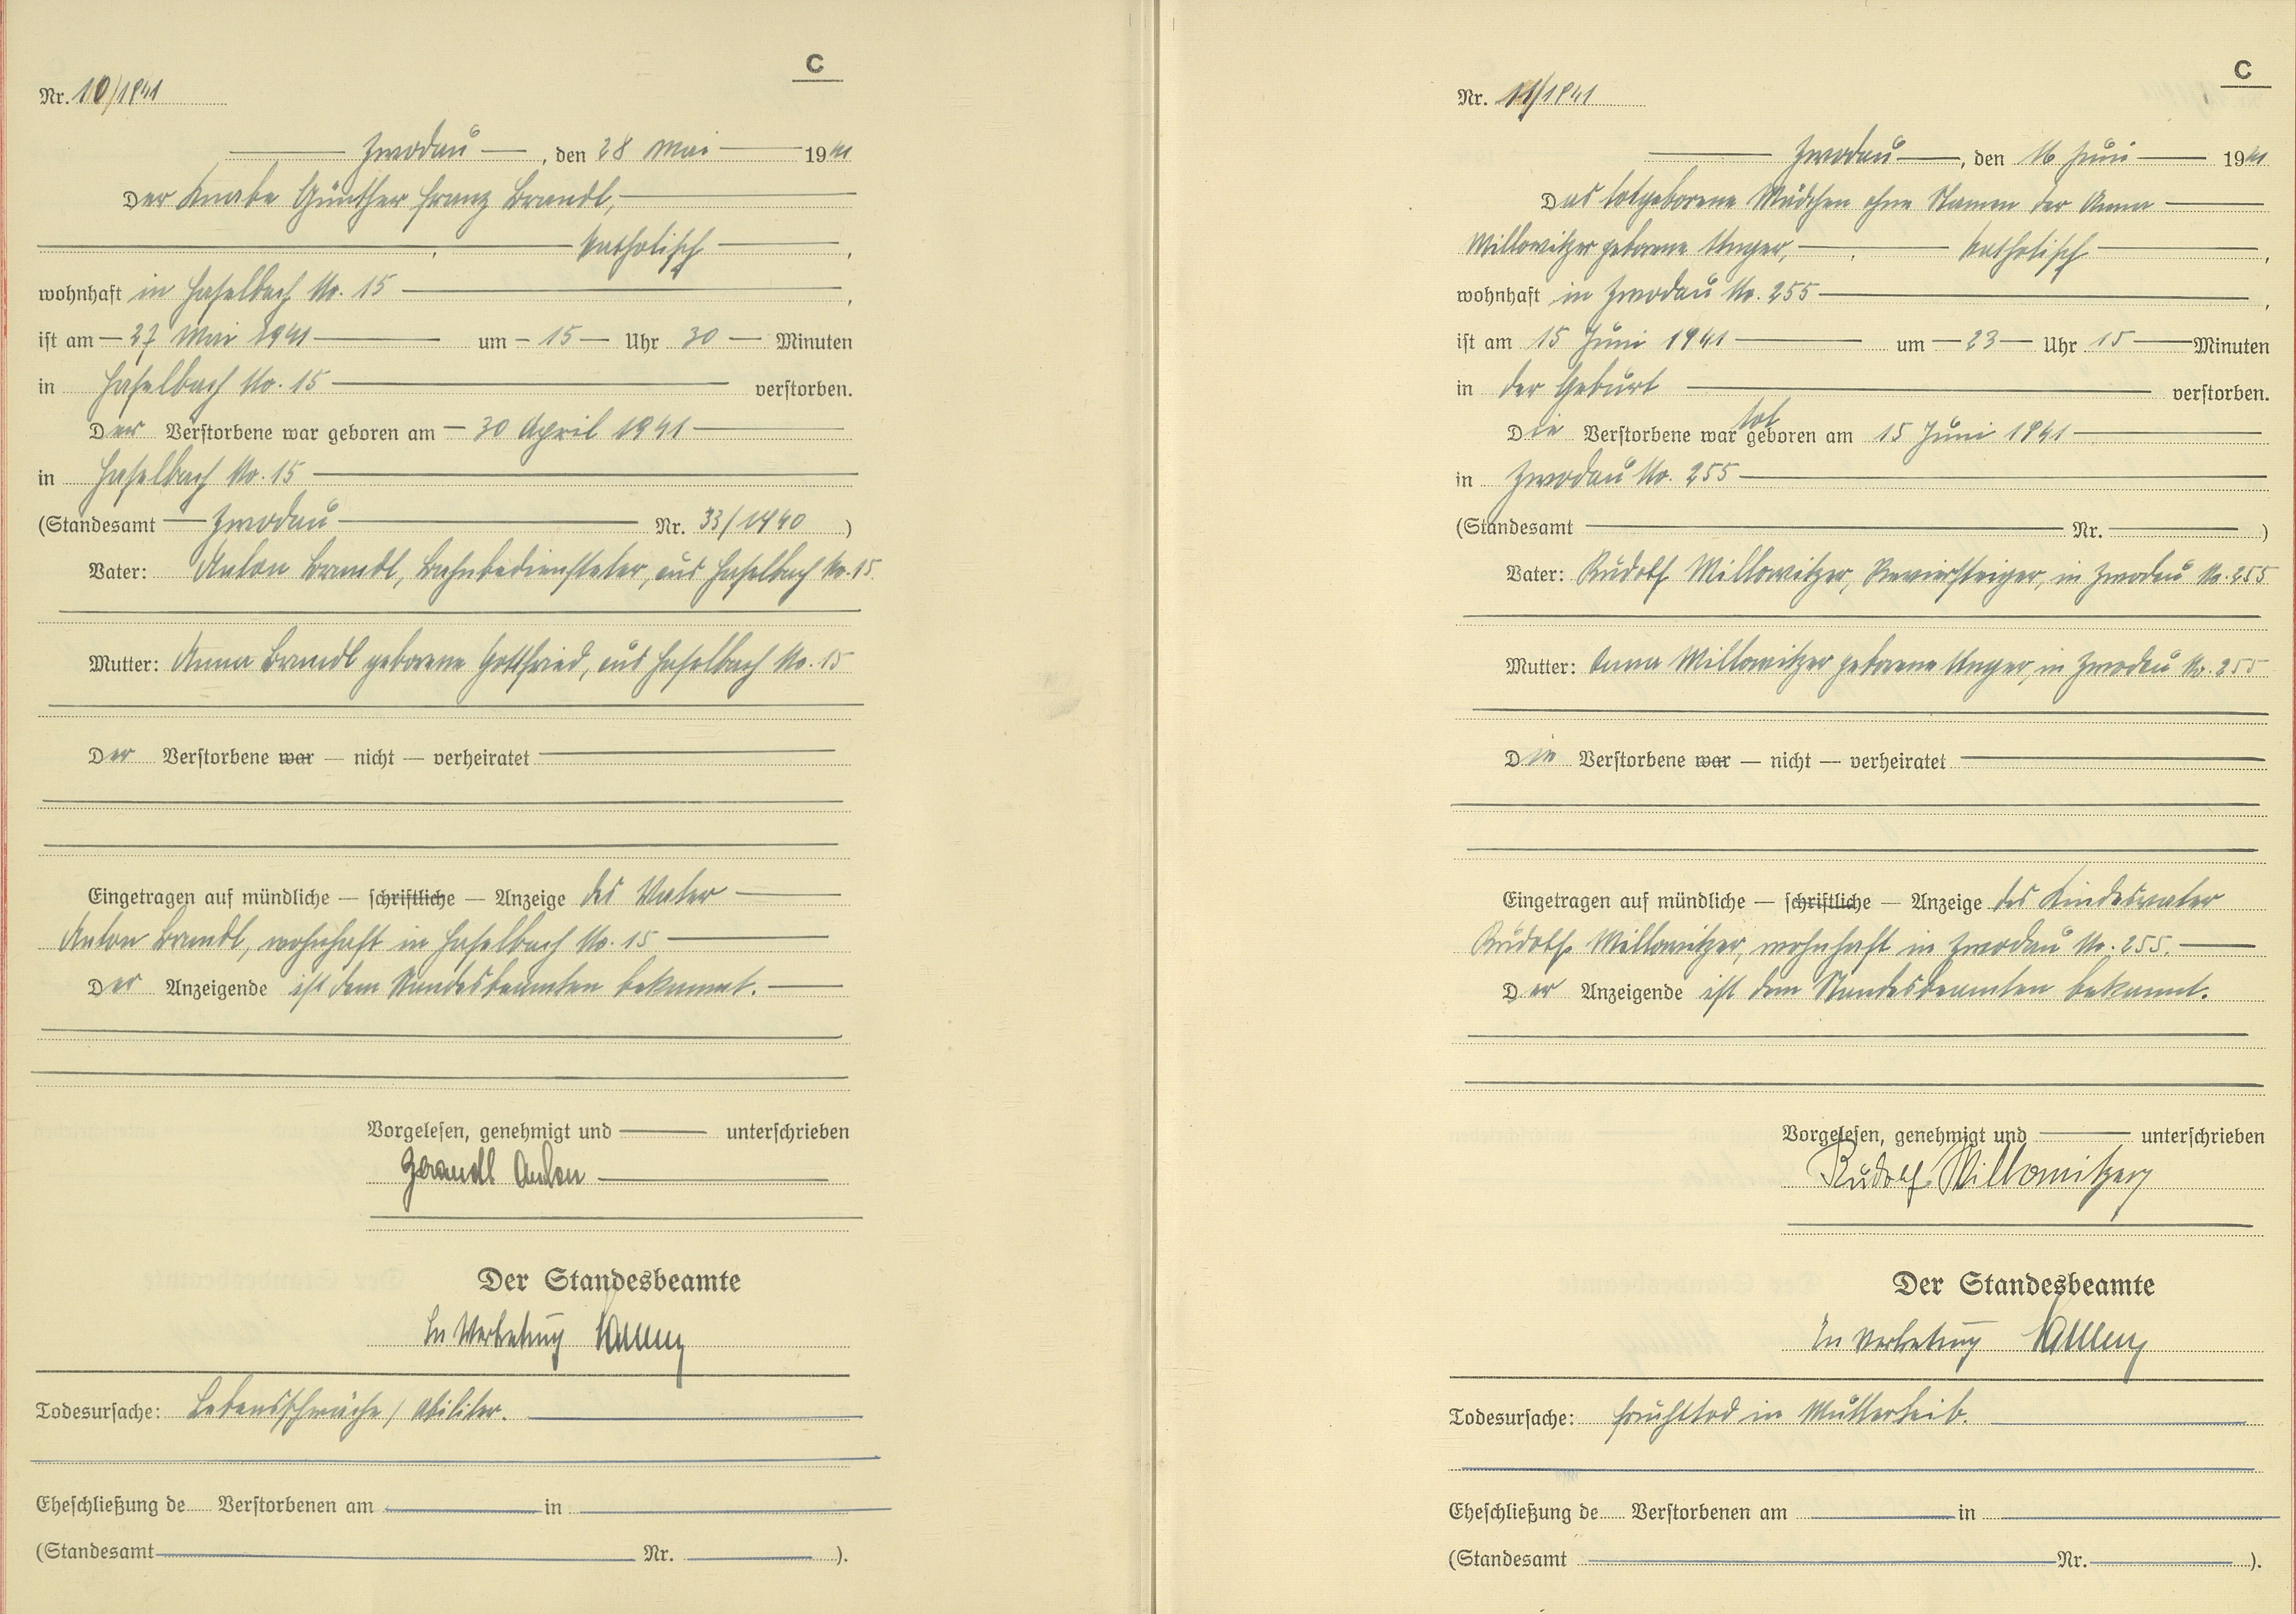 C
Nr. 10/1941
Zwodau, den 28 Mai 1941
Der Knabe Günther Franz Brandl,
katholisch,
wohnhaft in Haselbach No. 15,
ist am 27 Mai 1941 um 15 Uhr 30 Minuten
in Haselbach No. 15 verstorben.
Der Verstorbene war geboren am 30 April 1941
in Haselbach No. 15
(Standesamt Zwodau Nr. 33/1940)
Vater: Anton Brandl, Bahnbediensteter, aus Haselbach No. 15.
Mutter: Anna Brandl geborene Gottfried, aus Haselbach No. 15
Der Verstorbene war — nicht — verheiratet
Eingetragen auf mündliche — schriftliche — Anzeige des Vater
Anton Brandl, wohnhaft in Haselbach No. 15
Der Anzeigende ist dem Standesbeamten bekannt.
Vorgelesen, genehmigt und unterschrieben
Brandl Anton
Der Standesbeamte
In Vertretung
Todesursache: Lebensschwäche /
Eheschließung de Verstorbenen am in
(Standesamt Nr. ).
C
Nr. 11/1941
Zwodau, den 16 Juni 1941
Das totgeborene Mädchen ohne Namen der Anna
Millowitzer geborene Unger, katholisch,
wohnhaft in Zwodau No. 255,
ist am 15 Juni 1941 um 23 Uhr 15 Minuten
in der Geburt verstorben.
Die Verstorbene war tot geboren am 15 Juni 1941
in Zwodau No. 255
(Standesamt Nr. )
Vater: Rudolf Millowitzer, Reviersteiger, in Zwodau No. 255
Mutter: Anna Millowitzer geborene Unger, in Zwodau No. 255
Die Verstorbene war — nicht — verheiratet
Eingetragen auf mündliche — schriftliche — Anzeige des Kindesvater
Rudolf Millowitzer, wohnhaft in Zwodau No. 255.
Der Anzeigende ist dem Standesbeamten bekannt.
Vorgelesen, genehmigt und unterschrieben
Rudolf Millowitzer
Der Standesbeamte
In Vertretung
Todesursache: Fruchttod in Mutterleib.
Eheschließung de Verstorbenen am in
(Standesamt Nr. ).